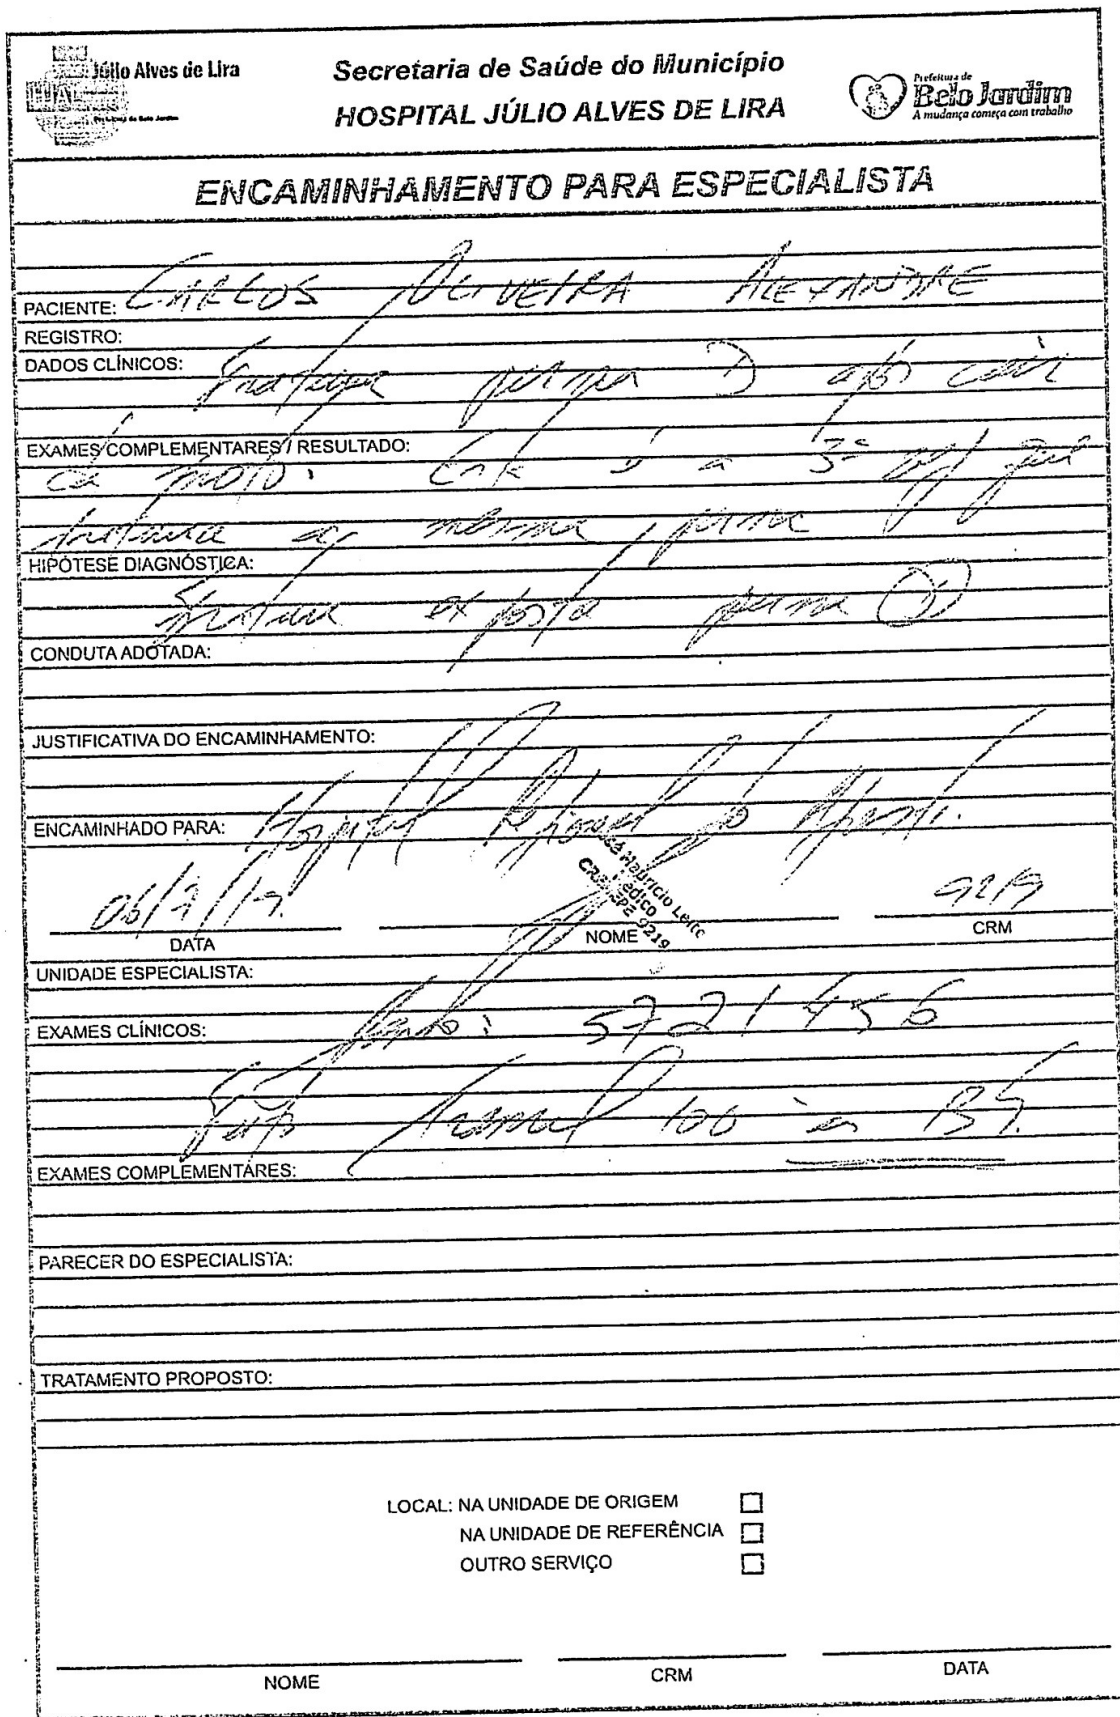 Júlio Alves de Lira
HJAL
Prefeitura de Belo Jardim
Secretaria de Saúde do Município
HOSPITAL JÚLIO ALVES DE LIRA
Prefeitura de
Belo Jardim
A mudança começa com trabalho
ENCAMINHAMENTO PARA ESPECIALISTA
PACIENTE: CARLOS OLIVEIRA ALEXANDRE
REGISTRO:
DADOS CLÍNICOS:
Fratura perna após cair
EXAMES COMPLEMENTARES / RESULTADO:
de moto. Este é a 3ª vez que
fratura a mesma perna
HIPÓTESE DIAGNÓSTICA:
Fratura exposta perna
CONDUTA ADOTADA:
JUSTIFICATIVA DO ENCAMINHAMENTO:
ENCAMINHADO PARA: Hospital Regional do Agreste.
José Maurício Leite
Médico
CRM-PE 9219
06/7/19. 9219
DATA NOME CRM
UNIDADE ESPECIALISTA:
EXAMES CLÍNICOS: 5721456
Feito Tramal 100
EXAMES COMPLEMENTARES:
PARECER DO ESPECIALISTA:
TRATAMENTO PROPOSTO:
LOCAL: NA UNIDADE DE ORIGEM
NA UNIDADE DE REFERÊNCIA
OUTRO SERVIÇO
NOME CRM DATA